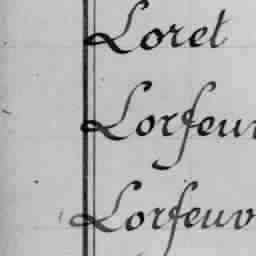 Loret
Lorfeuv
Lorfeuv